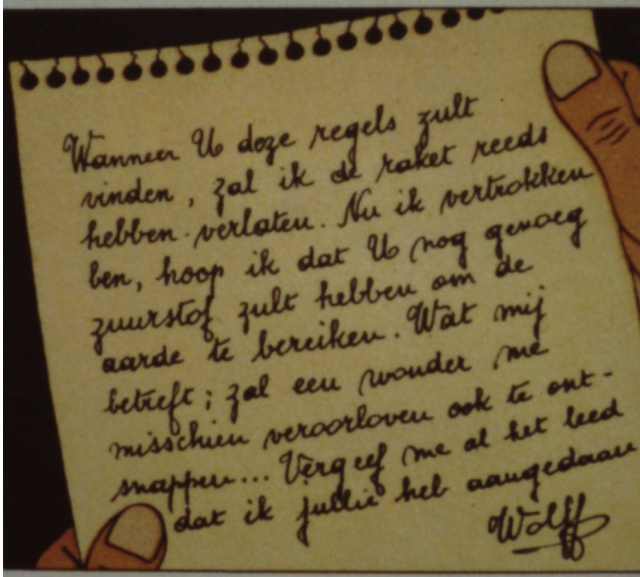 Wanneer U deze regels zult
vinden, zal ik de raket reeds
hebben verlaten. Nu ik vertrokken
ben, hoop ik dat U nog genoeg
zuurstof zult hebben om de
aarde te bereiken. Wat mij
betreft; zal een wonder me
misschien veroorloven ook te ont-
snappen... Vergeef me al het leed
dat ik jullie heb aangedaan
Wolff